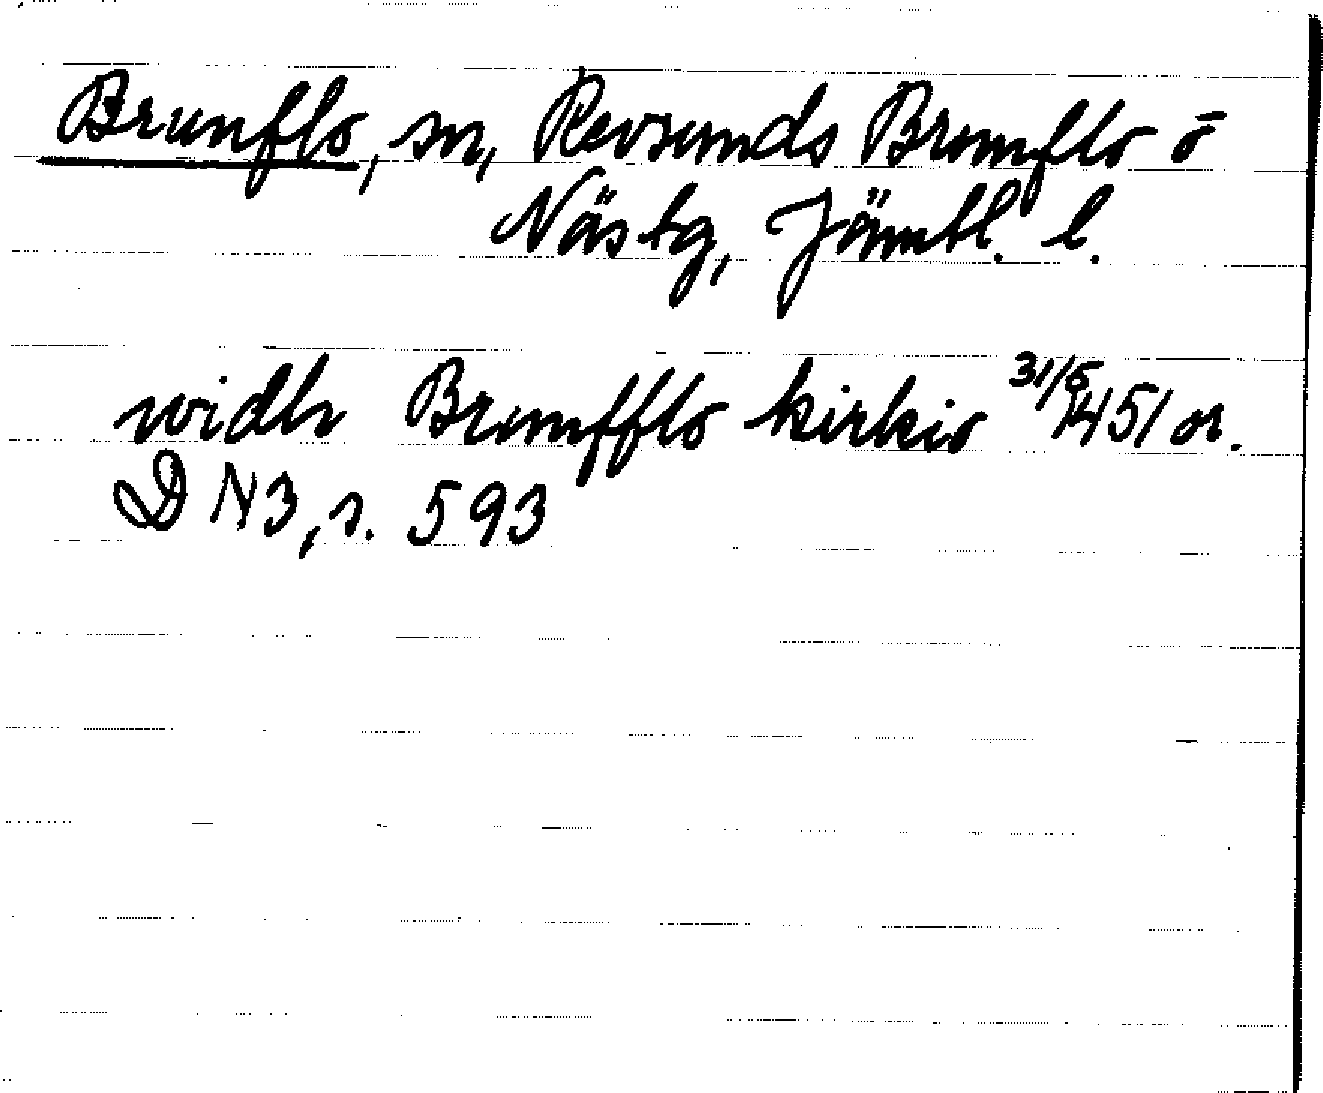 Brunflo, sn, Revsunds Brunflo o
Näs tg, Jämtl. l.
widh Brunfflo kirkio 31/5 1451 or.
DN3, s. 593